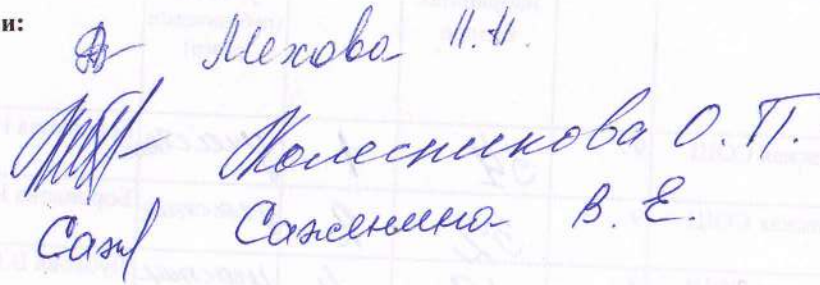 и:
Мехова И.И.
Колесникова О.П.
Саж Саженина В.Е.